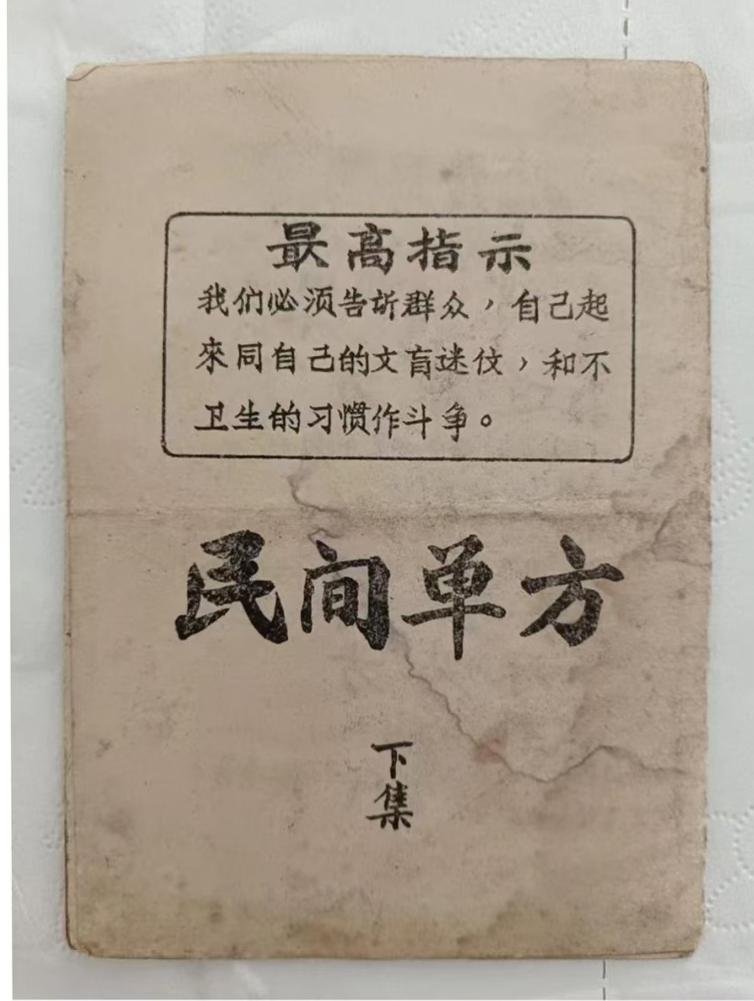 最高指示
我们必须告訴群众，自己起
來同自己的文盲迷伩，和不
卫生的习惯作斗争。
民间单方
下集